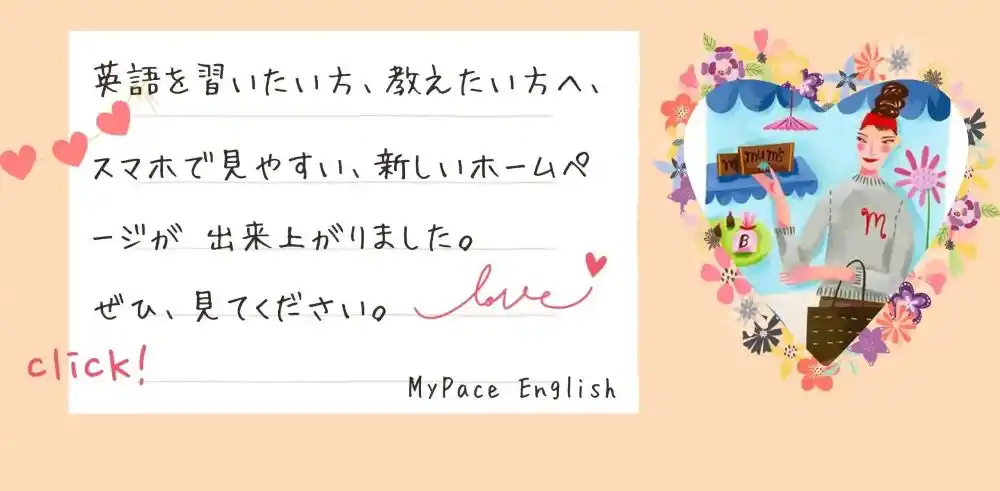 英語を習いたい方、教えたい方へ、
スマホで見やすい、新しいホームペ
ージが 出来上がりました。
ぜひ、見てください。
love
click!
MyPace English
mum's
m
B